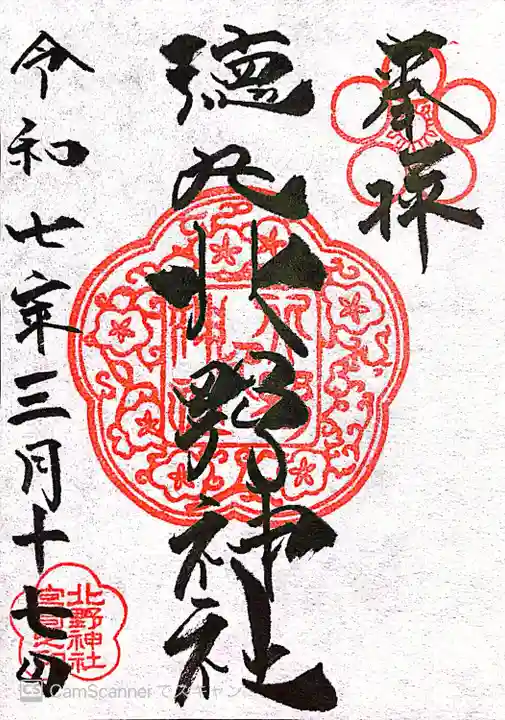 奉拝
徳丸北野神社
令和七年三月十七日
北野神社
宮司之印
CamScanner でスキャン